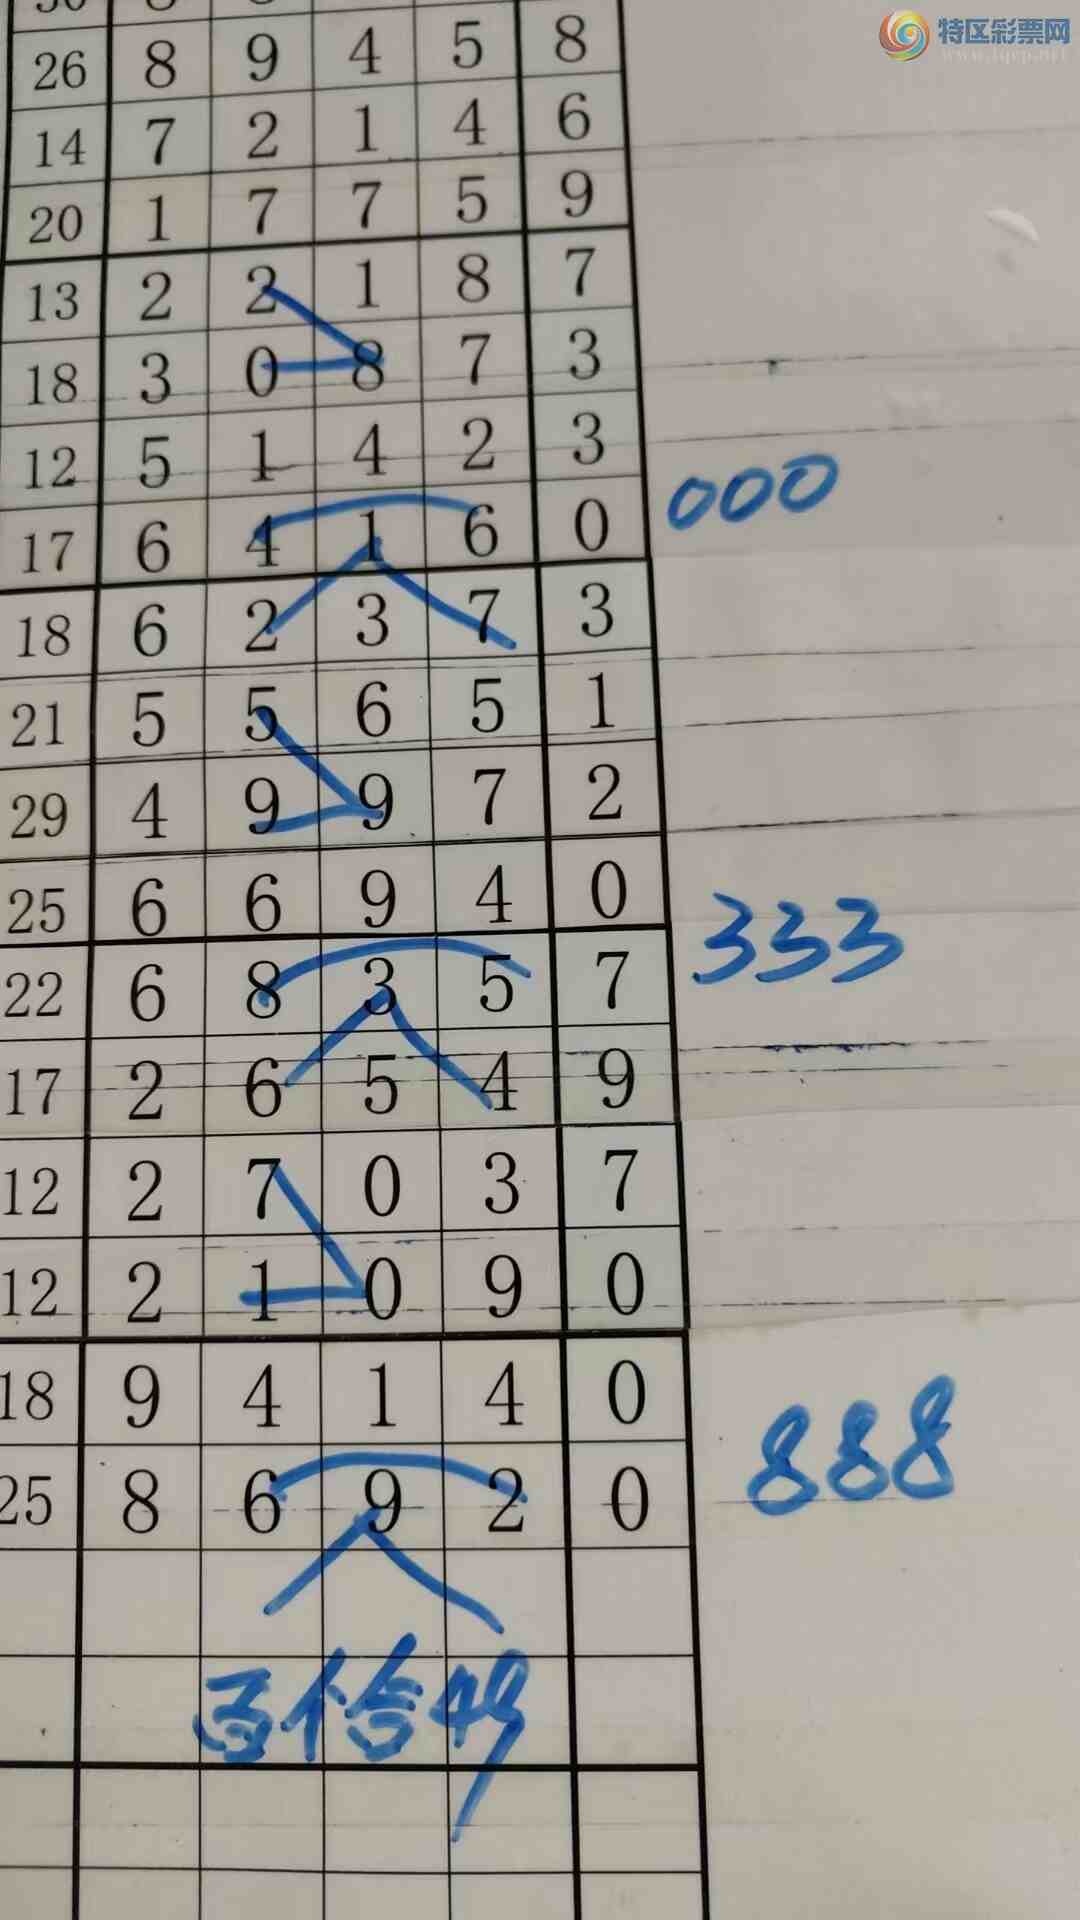 特区彩票网
www.tqcp.net
26 8 9 4 5 8
14 7 2 1 4 6
20 1 7 7 5 9
13 2 2 1 8 7
18 3 0 8 7 3
12 5 1 4 2 3
000
17 6 4 1 6 0
18 6 2 3 7 3
21 5 5 6 5 1
29 4 9 9 7 2
25 6 6 9 4 0
333
22 6 8 3 5 7
17 2 6 5 4 9
12 2 7 0 3 7
12 2 1 0 9 0
18 9 4 1 4 0
888
25 8 6 9 2 0
百拾